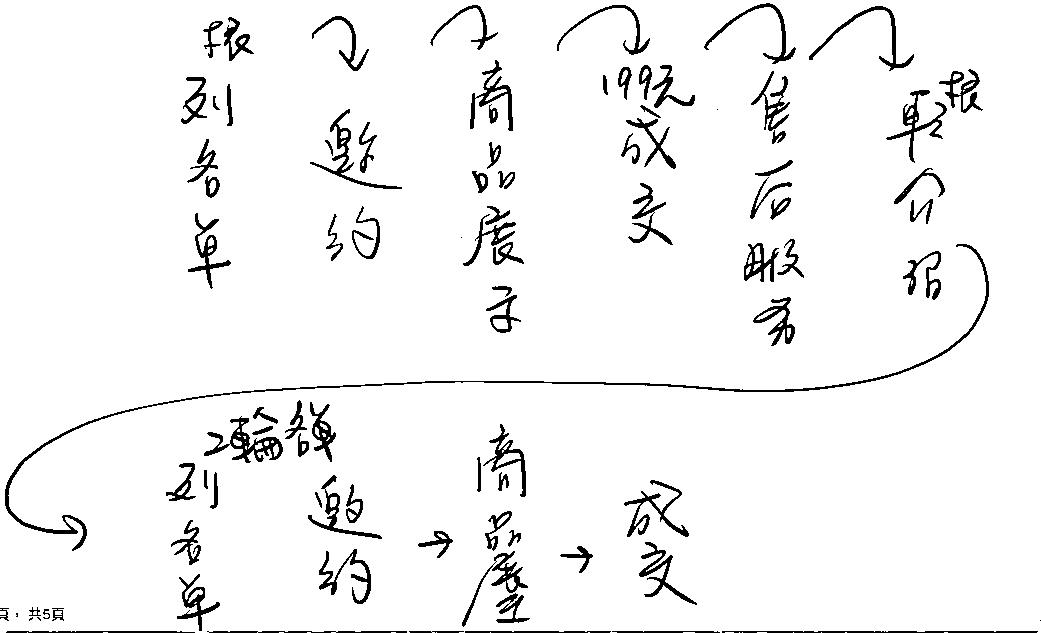 根
列名单
邀约
商品展示
199元
成交
售后服务
根
転介紹
2輪名單
列名单
邀约
商品展
成交
頁，共5頁